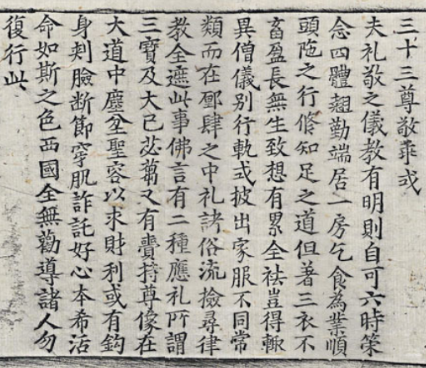 三十三尊敬乖式
夫礼敬之儀教有明則自可六時策
念四體翹勤端居一房乞食為業順
頭陁之行修知足之道但著三衣不
畜盈長無生致想有累全祛豈得輙
異僧儀別行軌式披出家服不同常
類而在鄽肆之中礼諸俗流撿尋律
教全遮此事佛言有二種應礼所謂
三寶及大己苾蒭又有賷持尊像在
大道中塵坌聖容以求財利或有鈎
身刺臉斷節穿肌詐託好心本希活
命如斯之色西國全無勸導諸人勿
復行此